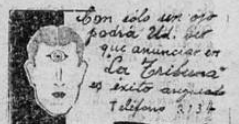 Con sólo un ojo
podrá Ud. ver
que anunciar en
"La Tribuna"
es éxito asegurado
Teléfono 3134